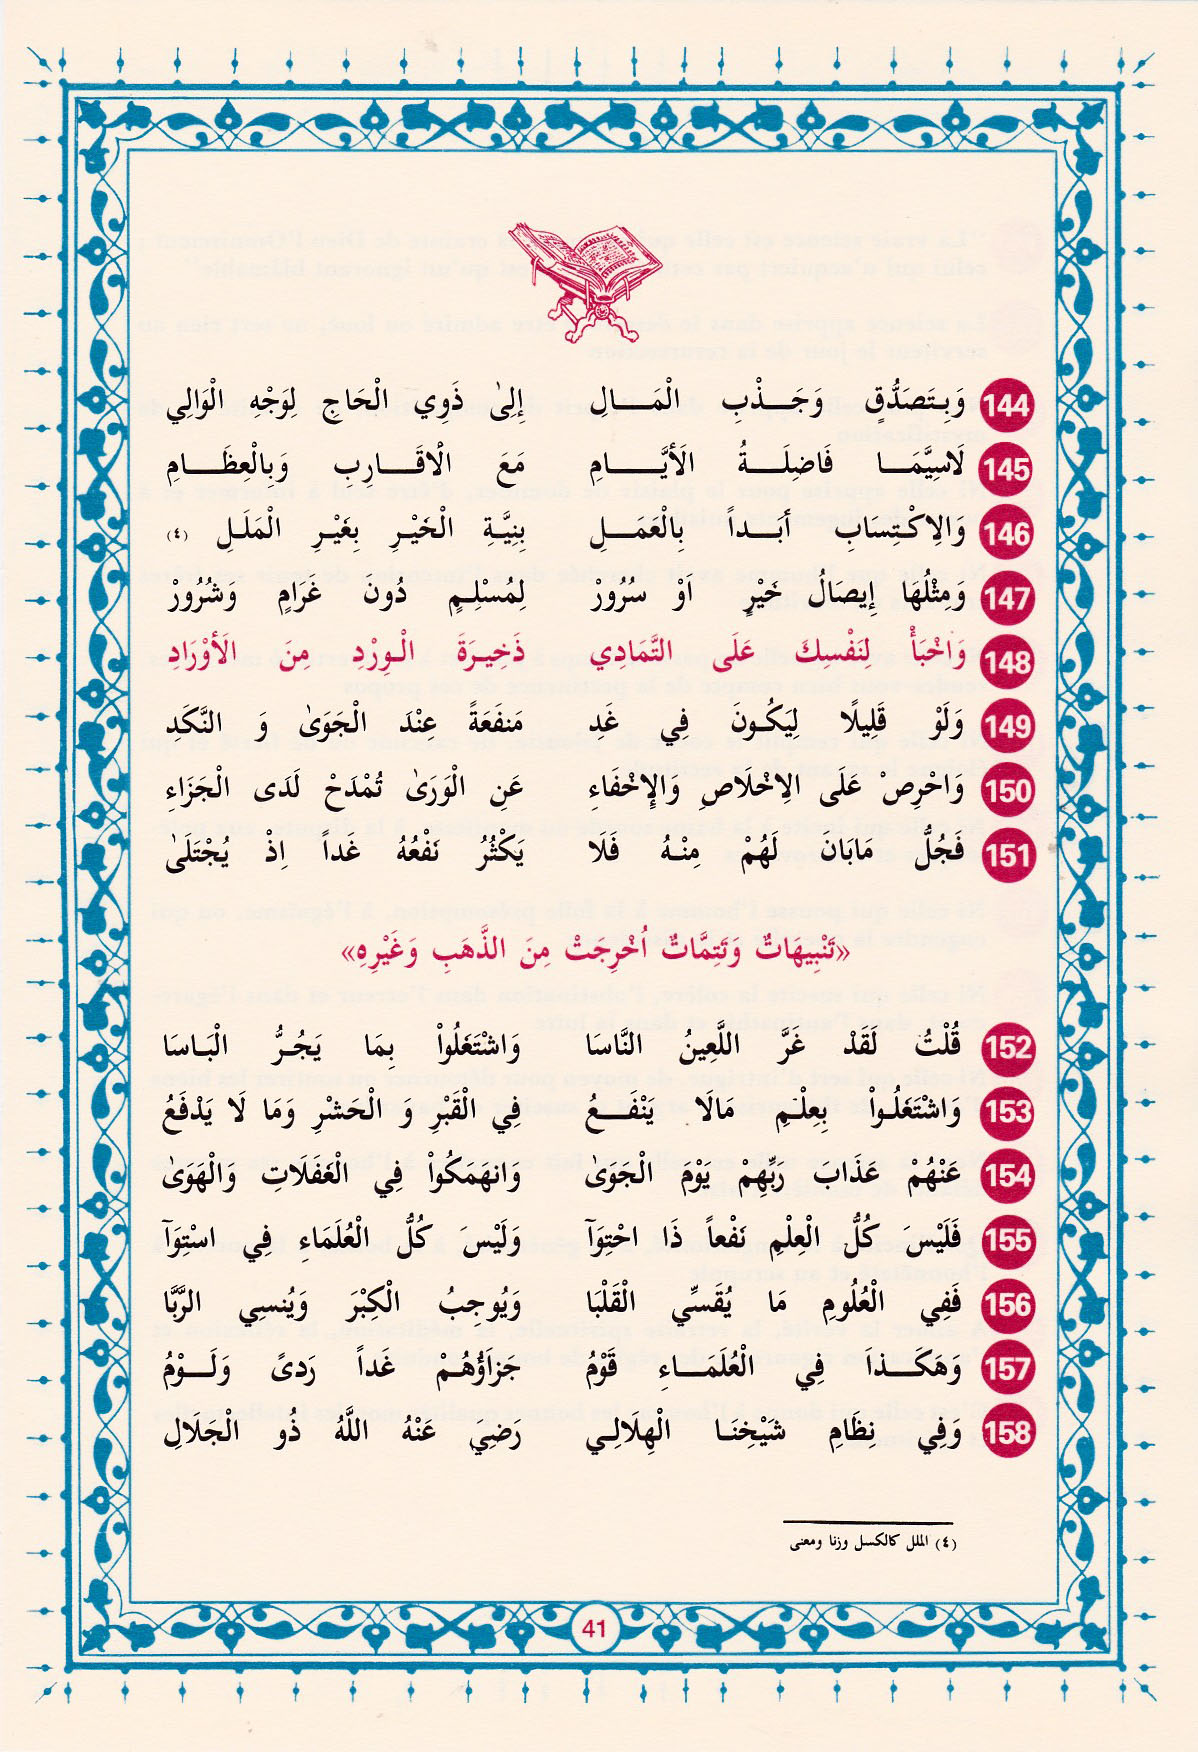 144 وَبِتَصَدُّقٍ وَجَذْبِ الْمَالِ إِلىٰ ذَوِي الْحَاجِ لِوَجْهِ الْوَالِي
145 لَاسِيَّمَا فَاضِلَةُ الْأَيَّامِ مَعَ الْاقَارِبِ وَبِالْعِظَامِ
146 وَالِاكْتِسَابِ أَبَداً بِالْعَمَلِ بِنِيَّةِ الْخَيْرِ بِغَيْرِ الْمَلَلِ (٤)
147 وَمِثْلُهَا إِيصَالُ خَيْرٍ اوْ سُرُورْ لِمُسْلِمٍ دُونَ غَرَامٍ وَشُرُورْ
148 وَاخْبَأْ لِنَفْسِكَ عَلَى التَّمَادِي ذَخِيرَةَ الْوِرْدِ مِنَ الَأوْرَادِ
149 وَلَوْ قَلِيلًا لِيَكُونَ فِي غَدِ مَنفَعَةً عِنْدَ الْجَوَىٰ وَ النَّكَدِ
150 وَاحْرِصْ عَلَى الِاخْلَاصِ وَالِإخْفَاءِ عَنِ الْوَرَىٰ تُمْدَحْ لَدَى الْجَزَاءِ
151 فَجُلُّ مَابَانَ لَهُمْ مِنْهُ فَلَا يَكْثُرُ نَفْعُهُ غَداً اِذْ يُجْتَلَىٰ
«تَنْبِيهَاتٌ وَتَتِمَّاتٌ اُخْرِجَتْ مِنَ الذَّهَبِ وَغَيْرِهِ»
152 قُلْتُ لَقَدْ غَرَّ اللَّعِينُ النَّاسَا وَاشْتَغَلُواْ بِمَا يَجُرُّ الْبَاسَا
153 وَاشْتَغَلُواْ بِعِلْمِ مَالَا يَنْفَعُ فِي الْقَبْرِ وَ الْحَشْرِ وَمَا لَا يَدْفَعُ
154 عَنْهُمْ عَذَابَ رَبِّهِمْ يَوْمَ الْجَوَىٰ وَانهَمَكُواْ فِي الْغَفَلَاتِ وَالْهَوَىٰ
155 فَلَيْسَ كُلُّ الْعِلْمِ نَفْعاً ذَا احْتِوَآ وَلَيْسَ كُلُّ الْعُلَمَاءِ فِي اسْتِوَآ
156 فَفِي الْعُلُومِ مَا يُقَسِّي الْقَلْبَا وَيُوجِبُ الْكِبْرَ وَيُنسِي الرَّبَّا
157 وَهَكَذاَ فِي الْعُلَمَاءِ قَوْمُ جَزَاؤُهُمْ غَداً رَدىً وَلَوْمُ
158 وَفِي نِظَامِ شَيْخِنَا الْهِلَالِي رَضِيَ عَنْهُ اللَّهُ ذُو الْجَلَالِ
(٤) الملل كالكسل وزنا ومعنى
41